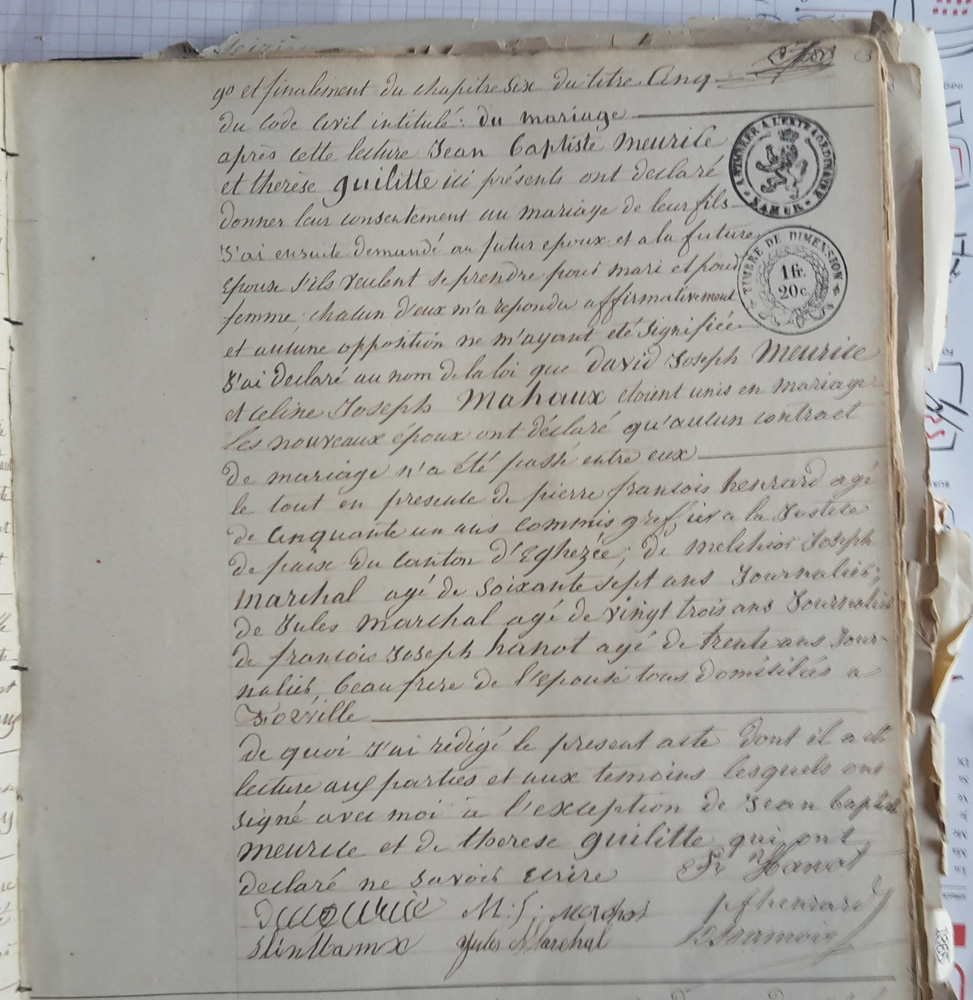 9º et finalement du chapitre six du titre Cinq
du Code Civil intitulé: du mariage
après cette lecture Jean Baptiste Meurice
et therèse guilitte ici présents ont declaré
donner leur consentement au mariage de leur fils
J'ai ensuite demandé au futur epoux et a la future
epouse s'ils veulent se prendre pour mari et pour
femme; chacun d'eux m'a repondu affirmativement
et aucune opposition ne m'ayant été signifiée
J'ai declaré au nom de la loi que david Joseph Meurice
et celine Joseph Mahaux etoient unis en mariage
les nouveaux époux ont déclaré qu'aucun contract
de mariage n'a été passé entre eux
le tout en presence de pierre francois henrard agé
de cinquante un ans commis greffier a la Justice
de paix du canton d'Eghezée; de melchior Joseph
marchal agé de soixante sept ans Journalier,
de Jules marchal agé de vingt trois ans Journalier
de francois Joseph hanot agé de trente ans Jour-
nalier, beau frere de l'epouse tous domiciliés a
de quoi J'ai redigé le present acte dont il a été
lecture aux parties et aux temoins lesquels ont
signé avec moi à l'exception de Jean baptiste
meurice et de therese guilitte qui ont
declaré ne savoir ecrire
Hanot
D meurice M:J: marchal pfhenrard
Jules Marchal
A TIMBRER A L'EXTRAORDINAIRE
NAMUR
TIMBRE DE DIMENSION
1 fr.
20 c.